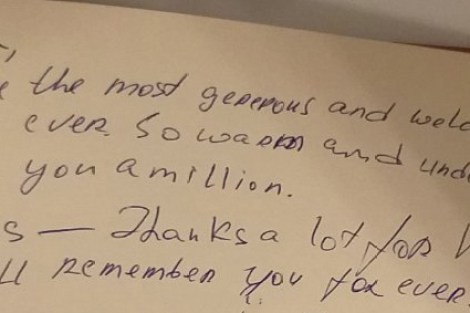 the most generous and
ever. So warm and
you a million.
s — Thanks a lot for
ll remember you for ever.